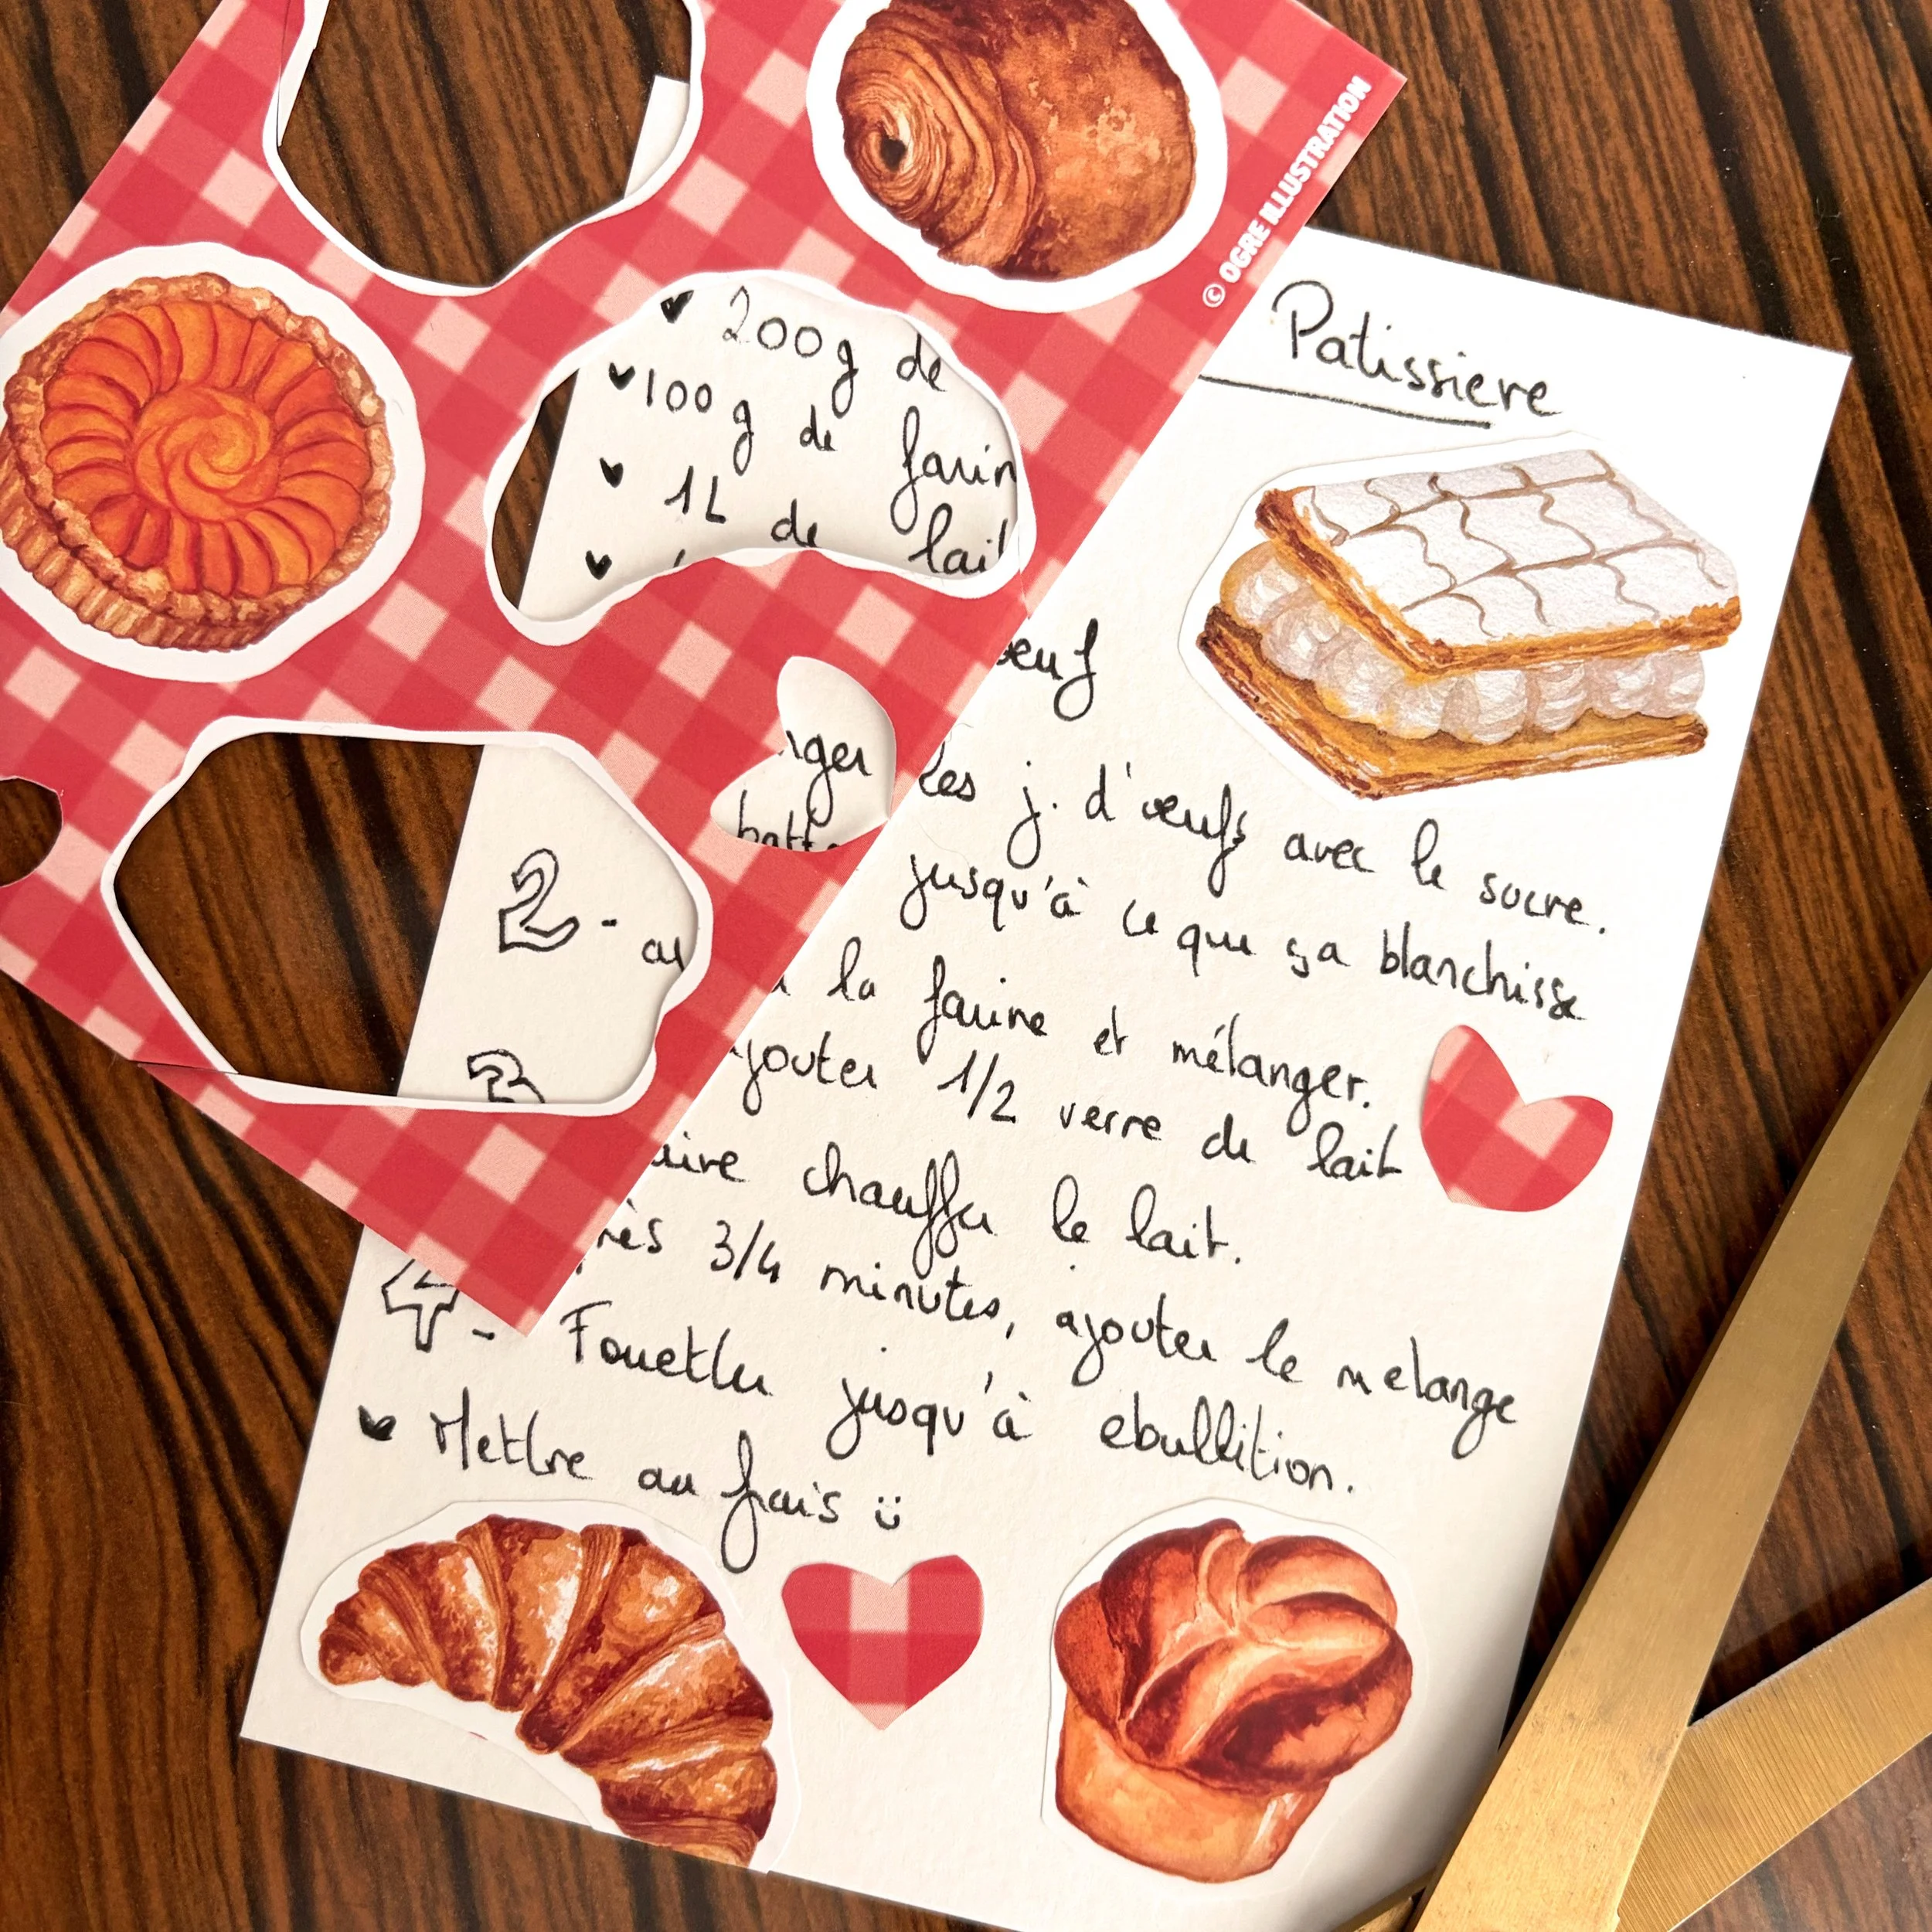 © OGRE ILLUSTRATION
Patissiere
200g de
100 g de farin
1L de lait
oeuf
nger les j. d'œufs avec le sucre.
batt jusqu'à ce que ça blanchisse
2- au la farine et mélanger.
jouter 1/2 verre de lait
3 aire chauffer le lait.
rès 3/4 minutes, ajouter le melange
4- Fouetter jusqu'à ebullition.
Mettre au frais